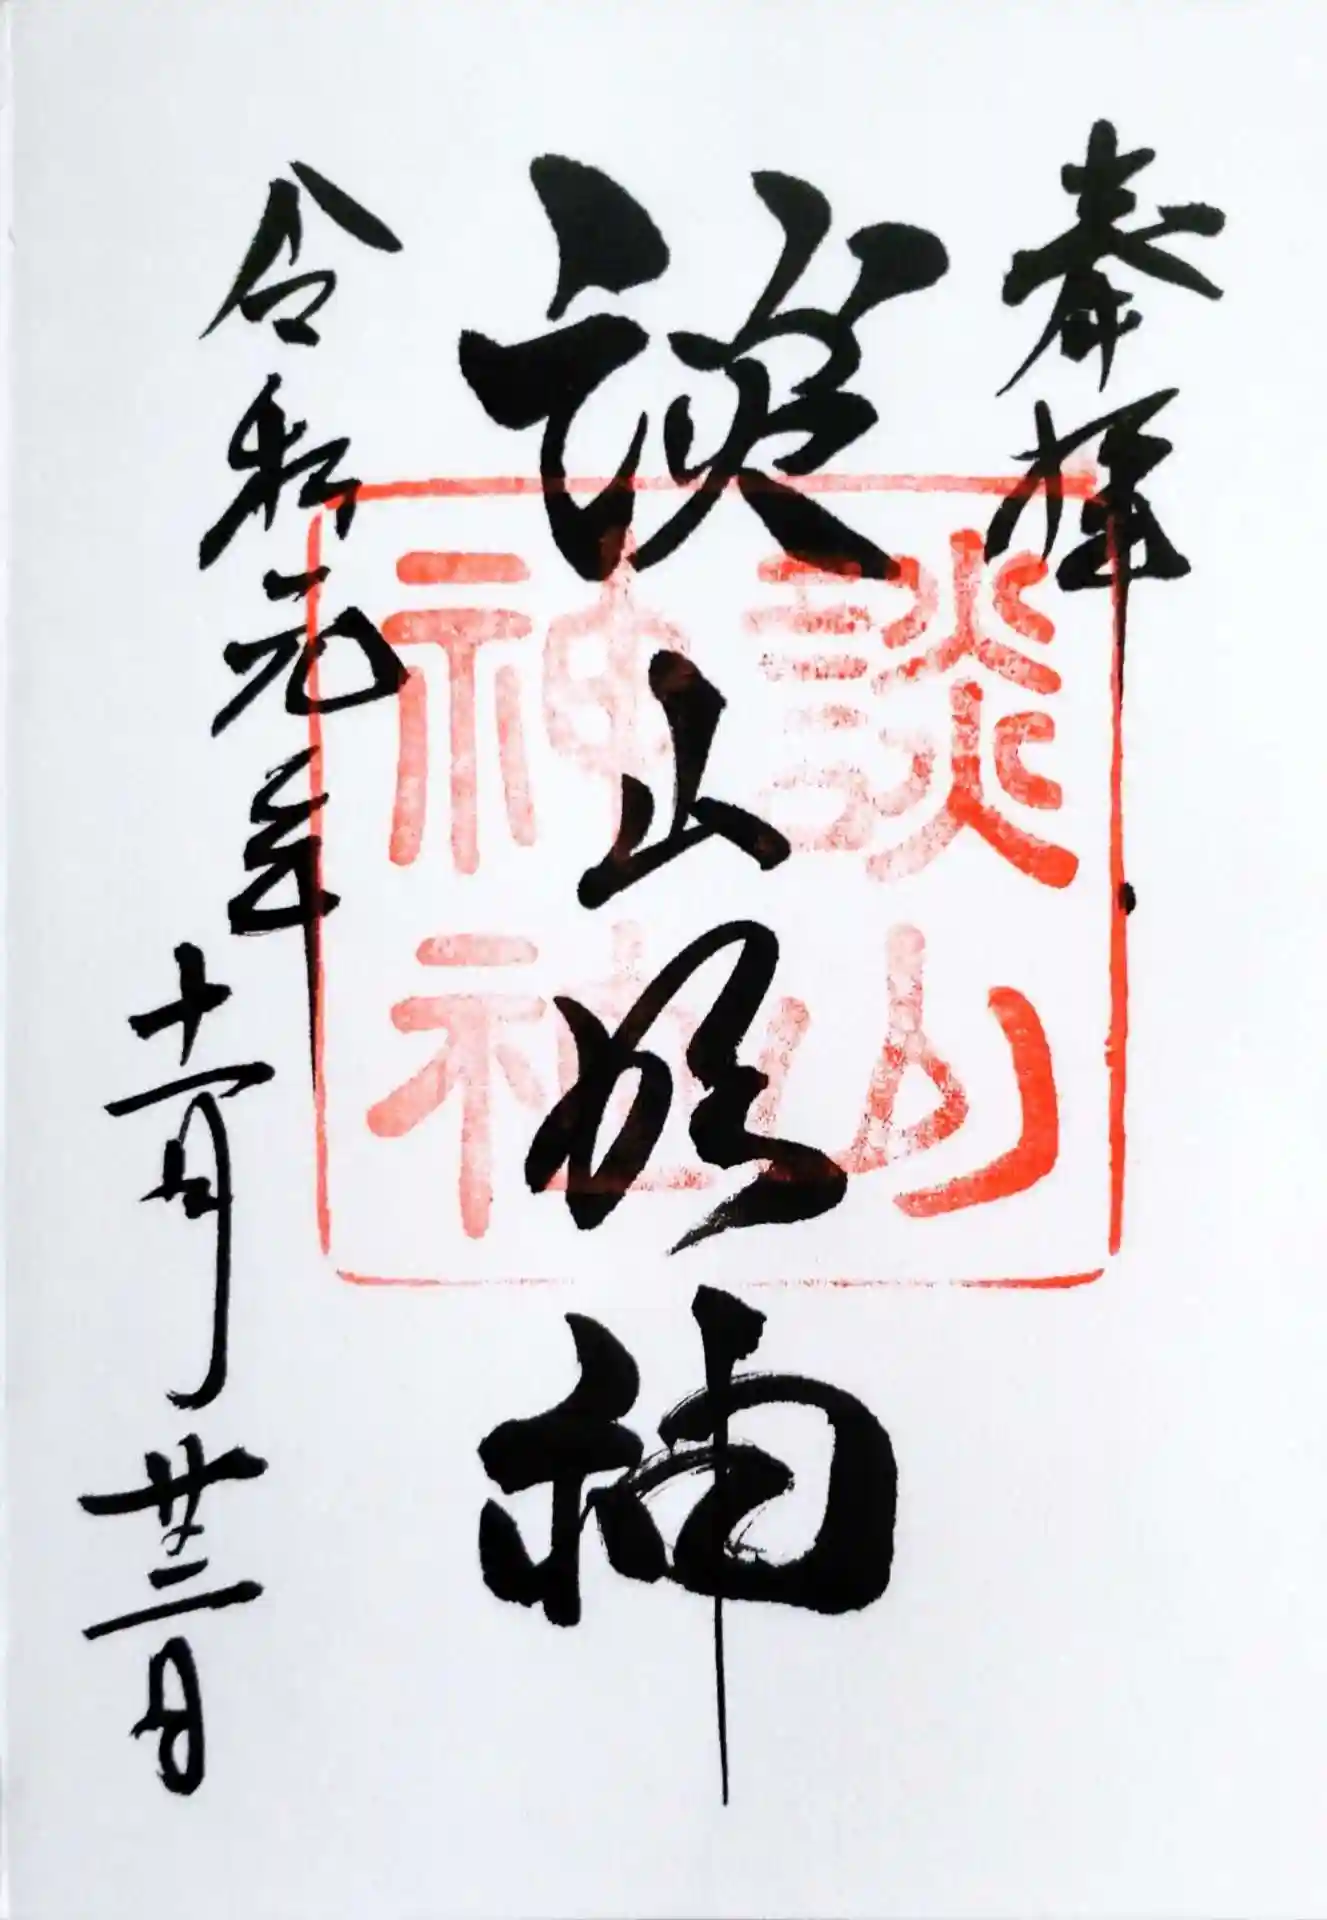 奉拝
談山明神
談山
神社
令和元年十一月廿三日